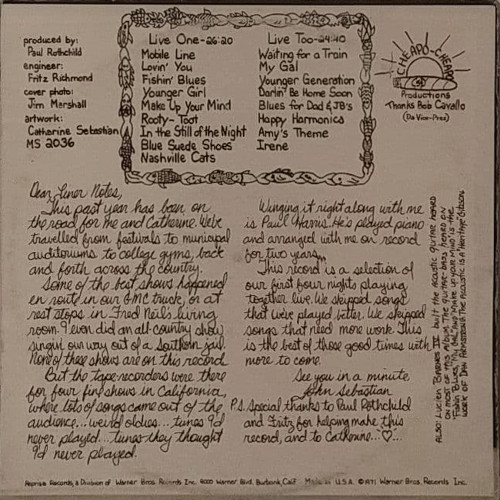 produced by:
Paul Rothchild
engineer:
Fritz Richmond
cover photo:
Jim Marshall
artwork:
Catherine Sebastian
MS 2036
Live One-26:20
Mobile Line
Lovin' You
Fishin' Blues
Younger Girl
Make Up Your Mind
Rooty-Toot
In the Still of the Night
Blue Suede Shoes
Nashville Cats
Live Too-24:40
Waiting for a Train
My Gal
Younger Generation
Darlin' Be Home Soon
Blues for Dad & JB's
Happy Harmonica
Amy's Theme
Irene
CHEAPO-CHEAPO
Productions
Thanks Bob Cavallo
(Da Vice-Prez)
Dear Liner Notes,
This past year has been on
the road for me and Catherine. We've
travelled from festivals to municipal
auditoriums to college gyms, back
and forth across the country.
Some of the best shows happened
en route in our GMC truck, or at
rest stops in Fred Neil's living
room. I even did an all-country show
singin our way out of a southern jail.
None of these shows are on this record
But the tape-recorders were there
for four fine shows in California,
where lots of songs came out of the
audience... weird oldies... tunes I'd
never played... tunes they thought
I'd never played.
Winging it right along with me
is Paul Harris. He's played piano
and arranged with me on record
for two years...
This record is a selection of
our first four nights playing
together live. We skipped songs
that we've played better. We skipped
songs that need more work. This
is the best of those good times with
more to come.
See you in a minute
John Sebastian
P.S. Special thanks to Paul Rothchild
and Fritz for helping make this
record, and to Catherine...♡...
ALSO: LUCIEN BARNES IV built the acoustic guitar heard
on most of this album. The guitar-bass heard on
"Fishin' Blues," "My Gal," and "Make up your Mind" is the
work of Dan Armstrong. The acoustic is a Heritage Gibson
Reprise Records, a Division of Warner Bros. Records Inc. 4000 Warner Blvd. Burbank, Calif. Made in U.S.A. © 1971 Warner Bros. Records Inc.